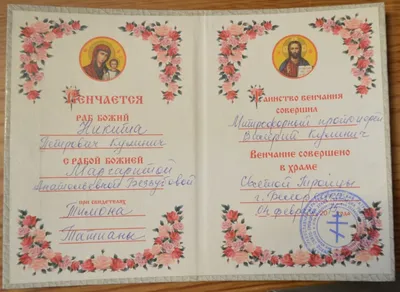 Венчается
раб Божий
Никита
Петрович Кулинич
с рабой Божией
Маргаритой
Анатольевной Безьубовой
при свидетелях
Тимона
Татианы
Таинство венчания
совершил
Митрофорный протоиерей
Валерий Кулинич
Венчание совершено
в храме
Святой Троицы
г.
04 февраля 20 года